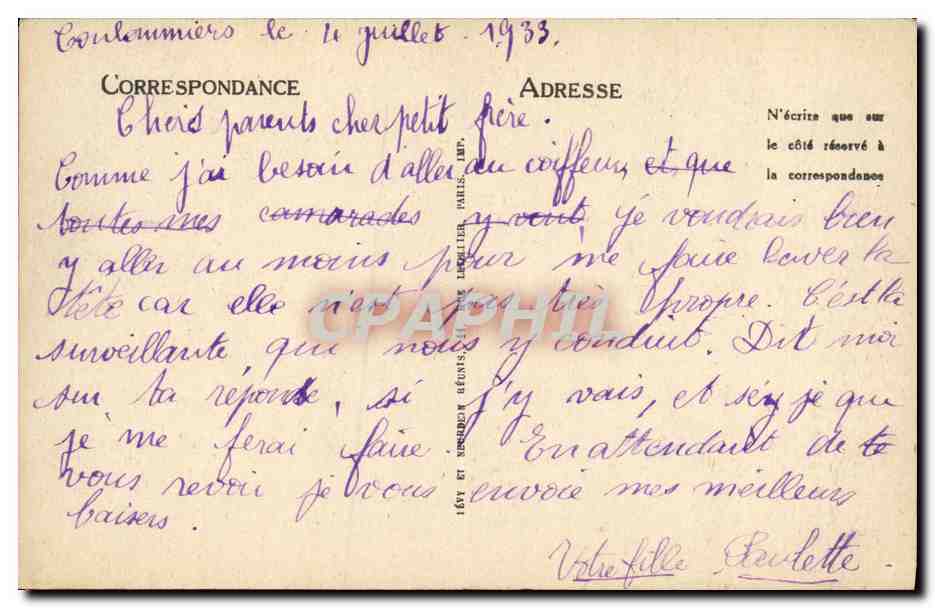 Coulommiers le 4 juillet 1933.
CORRESPONDANCE
ADRESSE
N'écrire que sur
le côté réservé à
la correspondance
Chers parents cher petit frère.
Comme j'ai besoin d'aller au coiffeur, et que
toutes mes camarades y vont, je voudrais bien
y aller au moins pour me faire laver la
tête car elle n'est pas très propre. C'est la
surveillante qui nous y conduit. Dit moi
sur ta réponse, si j'y vais, et s'ey je que
je me ferai faire. En attendant de te
vous revoir je vous envoie mes meilleurs
baisers.
Votre fille Paulette.
LÉVY ET NEURDEIN RÉUNIS, 44 RUE LETELLIER PARIS. IMP.
CPAPHIL